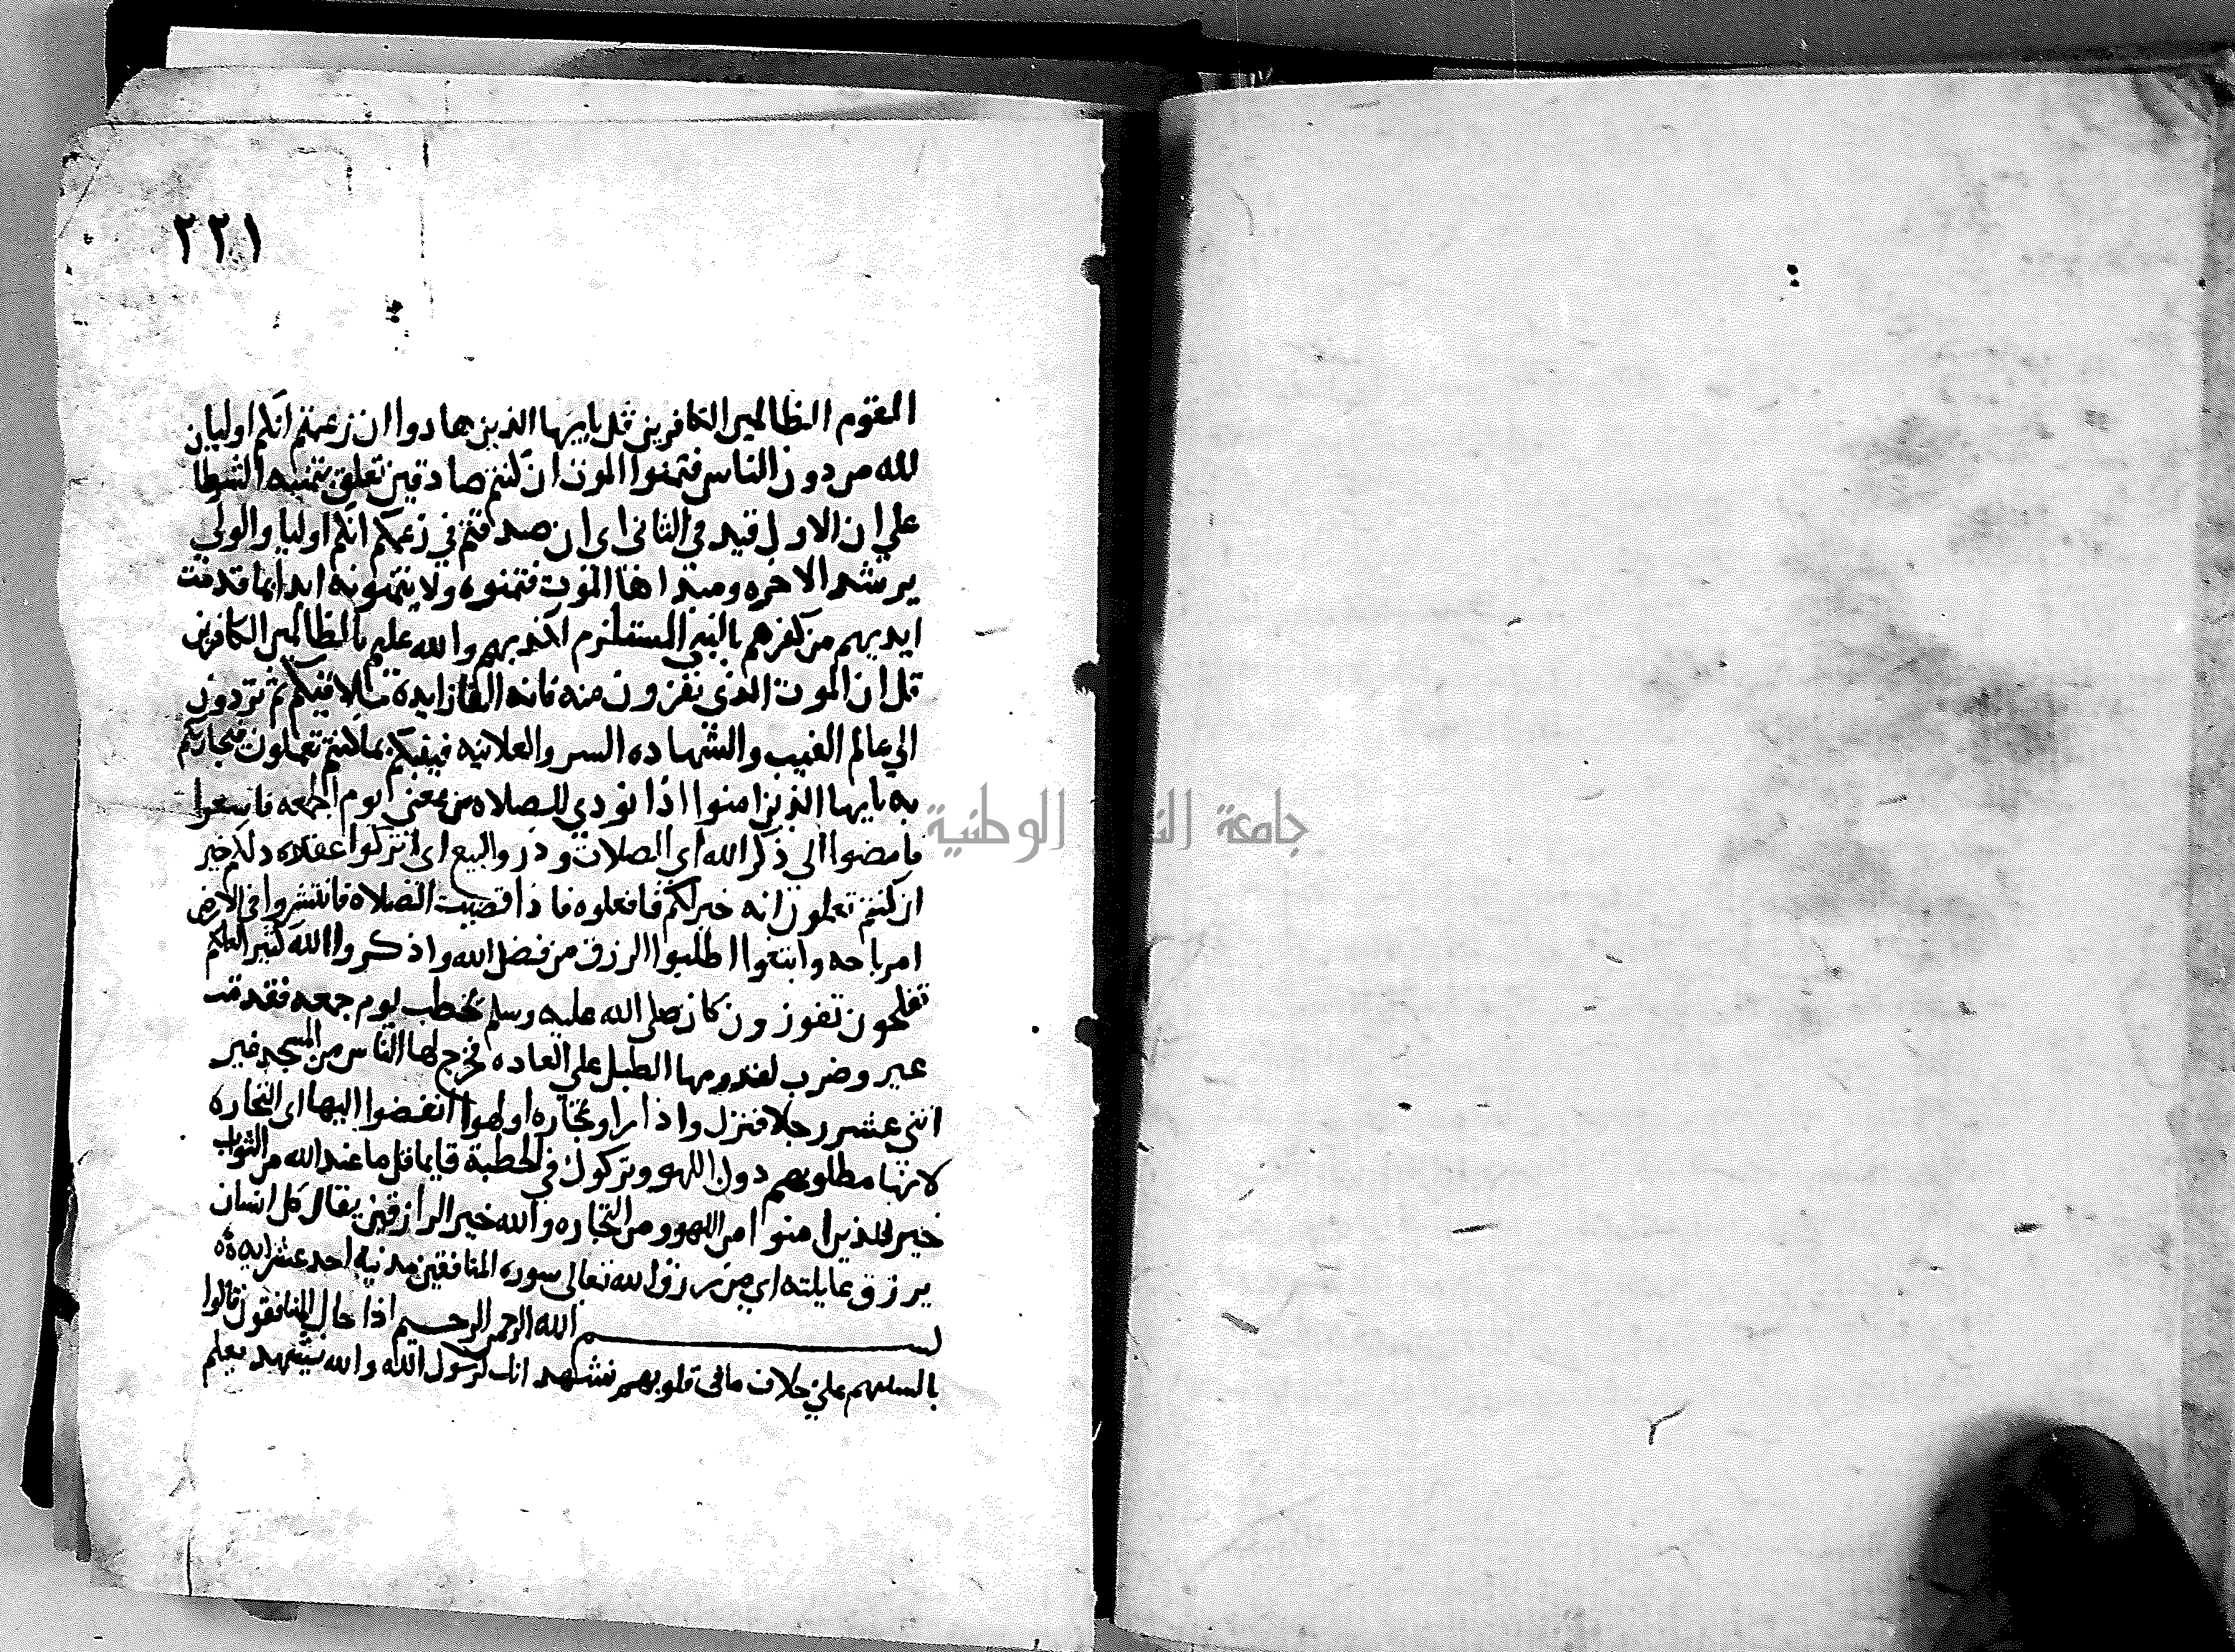 ٢٢١
القوم الظالمين الكافرين قل يايها الذين هادوا ان زعمتم انكم اوليان
لله من دون الناس فتمنوا الموت ان كنتم صادقين تعلق بتمنيه الشرطا
علي ان الاول قيد في الثاني اي ان صدقتم في زعمكم انكم اوليا والولي
الاخره ومبداها الموت فتمنوه ولا يتمنونه ابدا بما قدمت
ايديهم من كفرهم بالنبي المستلزم لكذبهم والله عليم بالظالمين الكافرين
قل ان الموت الذي تفرون منه فانه الفا زايدة ملاقيكم ثم تردون
الي عالم الغيب والشهاده السر والعلانيه فينبكم بما كنتم تعملون فيجازيكم
به يايها الذين امنوا اذا نودي للصلاه من بمعني يوم الجمعه فاسعوا
فامضوا الي ذكر الله اي الصلات وذروالبيع اي اتركوا عقده ذلكم خير
ان كنتم تعلمون انه خير لكم فافعلوه فاذا قضيت الصلاه فانتشروا في الارض
امر باحه وابتغوا اطلبوا الرزق من فضل الله واذكروا الله كثيرا لعلكم
تفلحون تفوزون كان صلي الله عليه وسلم يخطب يوم جمعه فقدمت
عير وضرب لقدومها الطبل علي العاده فخرج لها الناس من المسجد غير
اثني عشر رجلا فنزل واذا راوا تجاره او لهوا انفضوا اليها اي التجاره
لانها مطلوبهم دون اللهو وتركوك في الخطبة قايما قل ما عند الله من الثواب
خير للذين امنوا من اللهو ومن التجاره والله خير الرازقين يقال كل انسان
يرزق عايلته اي من رزق الله تعالي سورة المنافقين مدنيه احد عشر ايه
بسم الله الرحمن الرحيم اذا جاك المنافقون قالوا
بالسنتهم علي خلاف ما في قلوبهم نشهد انك لرسول الله والله يشهد يعلم
جامعة الوطنية